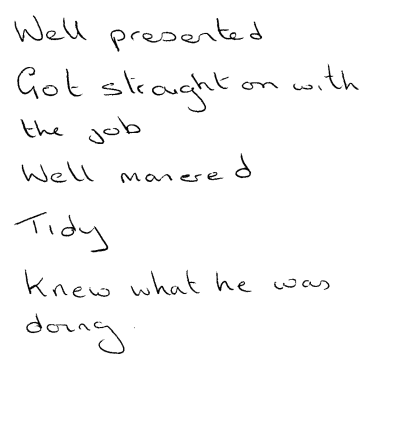 Well presented
Got straight on with
the job
Well manered
Tidy
Knew what he was
doing